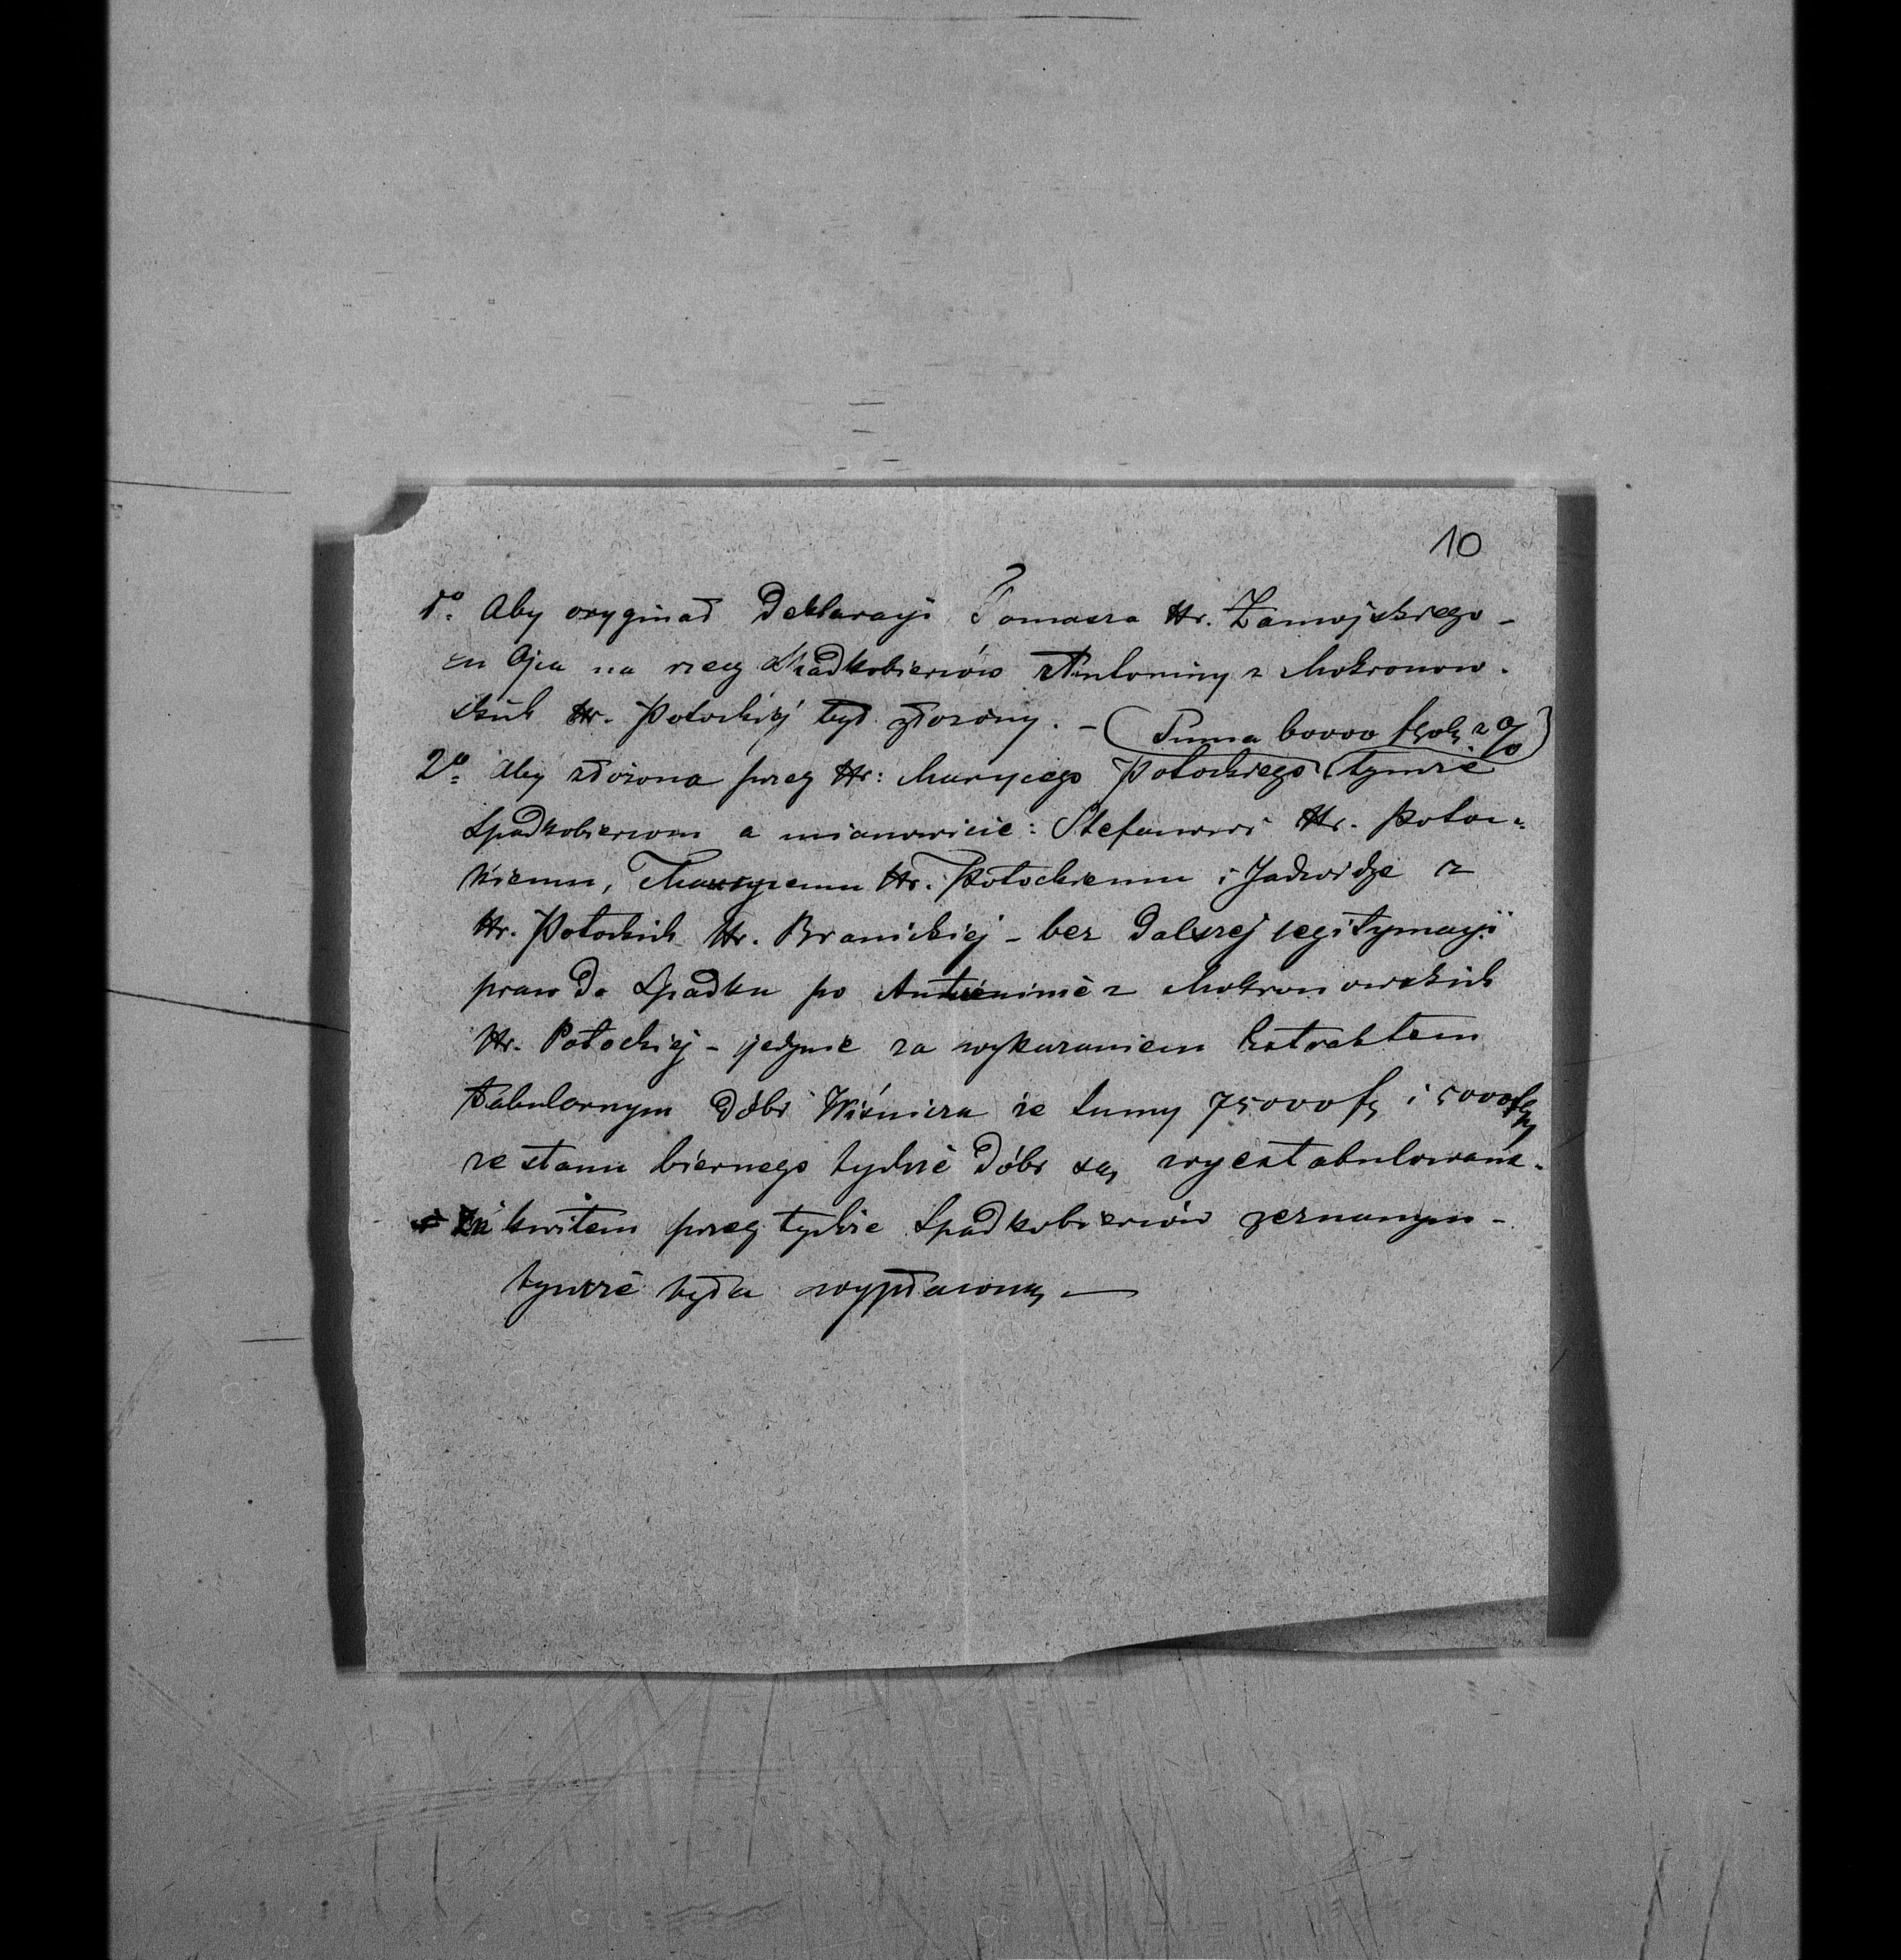 10
1º Aby oryginał Deklaracyi Tomasza Hr. Zamojskiego -
Ojca na rzecz Spadkobierców Antoniny z Mokronow-
skich Hr. Potockiej był złożony. -
(Suma 60000 z %)
2º Aby złożona przez Hr: Maurycego Potockiego tymże
Spadkobiercom a mianowicie: Stefanowi Hr. Potoc-
kiemu, Maurycemu Hr. Potockiemu i Jadwidze z
Hr. Potockich Hr. Branickiej - bez dalszej legitymacyi
praw do Spadku po Antoninie z Mokronowskich
Hr. Potockiej - jedynie za wykazaniem Extraktem
tabularnym Dóbr Wiśnicza że Sumy 75000 f i 5000
ze stanu biernego tychże Dóbr są wyextabulowane -
za kwitem przez tychże Spadkobierców zeznanym -
tymże była wypłaconą —